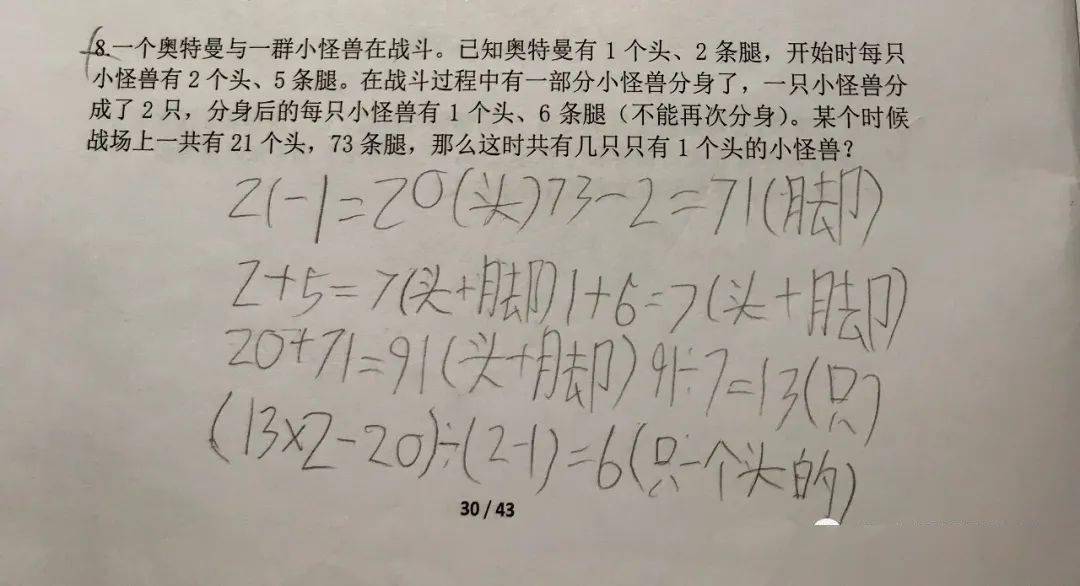 8.一个奥特曼与一群小怪兽在战斗。已知奥特曼有1个头、2条腿，开始时每只
小怪兽有2个头、5条腿。在战斗过程中有一部分小怪兽分身了，一只小怪兽分
成了2只，分身后的每只小怪兽有1个头、6条腿（不能再次分身）。某个时候
战场上一共有21个头，73条腿，那么这时共有几只只有1个头的小怪兽？
21-1=20(头)73-2=71(脚)
2+5=7(头+脚)1+6=7(头+脚)
20+71=91(头+脚)91÷7=13(只)
(13×2-20)÷(2-1)=6(只一个头的)
30 / 43